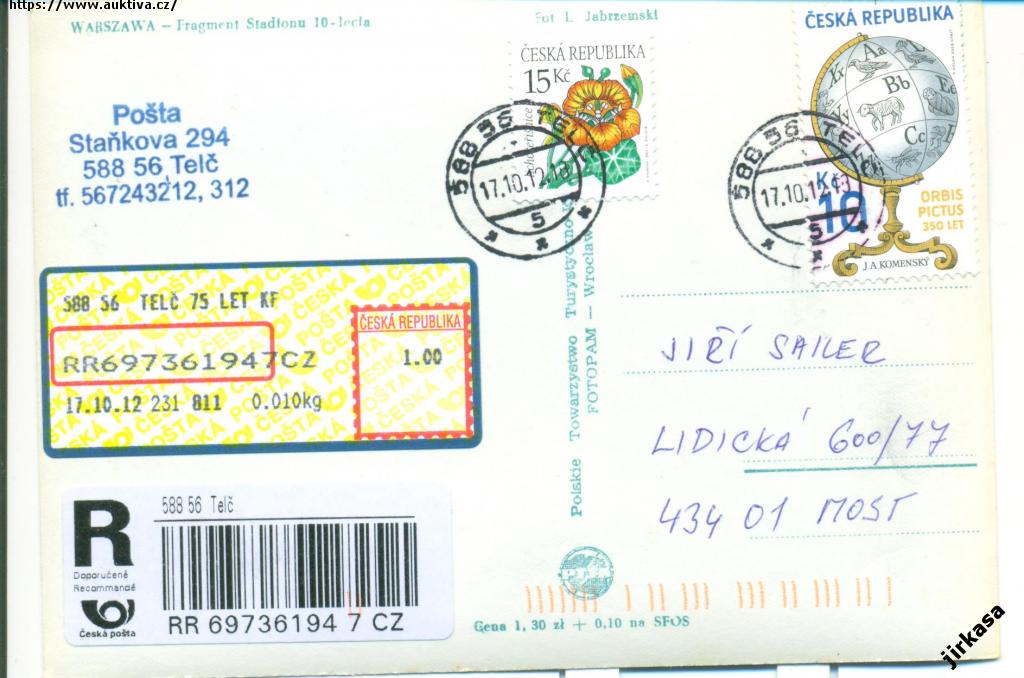 https://www.auktiva.cz/
WARSZAWA — Fragment Stadionu 10-lecia
Fot L. Jabrzemski
Pošta
Staňkova 294
588 56 Telč
tf. 567243212, 312
ČESKÁ REPUBLIKA
15 Kč
588 56 TELČ
17.10.12.18
5
ČESKÁ REPUBLIKA
Aa
Bb
Cc
Kč
10
ORBIS
PICTUS
350 LET
J.A. KOMENSKÝ
588 56 TELČ
17.10.12.18
5
588 56 TELČ 75 LET KF
ČESKÁ REPUBLIKA
RR697361947CZ
1.00
17.10.12 231 811 0.010kg
Polskie Towarzystwo Turystyczno
FOTOPAM — Wrocław
JIŘÍ SAILER
LIDICKÁ 600/77
434 01 MOST
R
Doporučeně
Recommandé
Česká pošta
588 56 Telč
RR 69736194 7 CZ
Cena 1,30 zł + 0,10 na SFOS
jirkasa